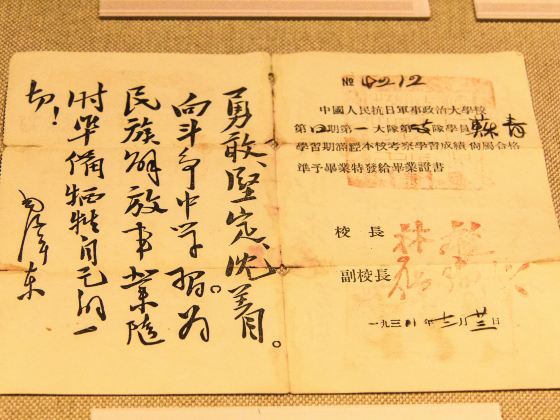 勇敢、堅定、沈着。
向斗争中学習。为
民族解放事業隨
时準備牺牲自己的一
切！
毛澤东
№ 4212
中國人民抗日軍事政治大學校
第四期第一大隊第五隊學員蘇青
學習期滿經本校考察學習成績尚屬合格
準予畢業特發給畢業證書
校長 林彪
副校長
一九三八年十二月日